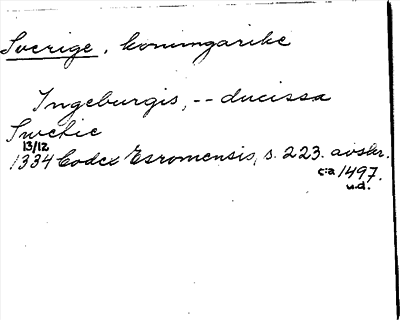 Sverige, konungarike
Ingeburgis, -- ducissa
Swechie
13/12
1334 Codex Esromensis, s. 223. avskr.
c:a 1497.
u.d.